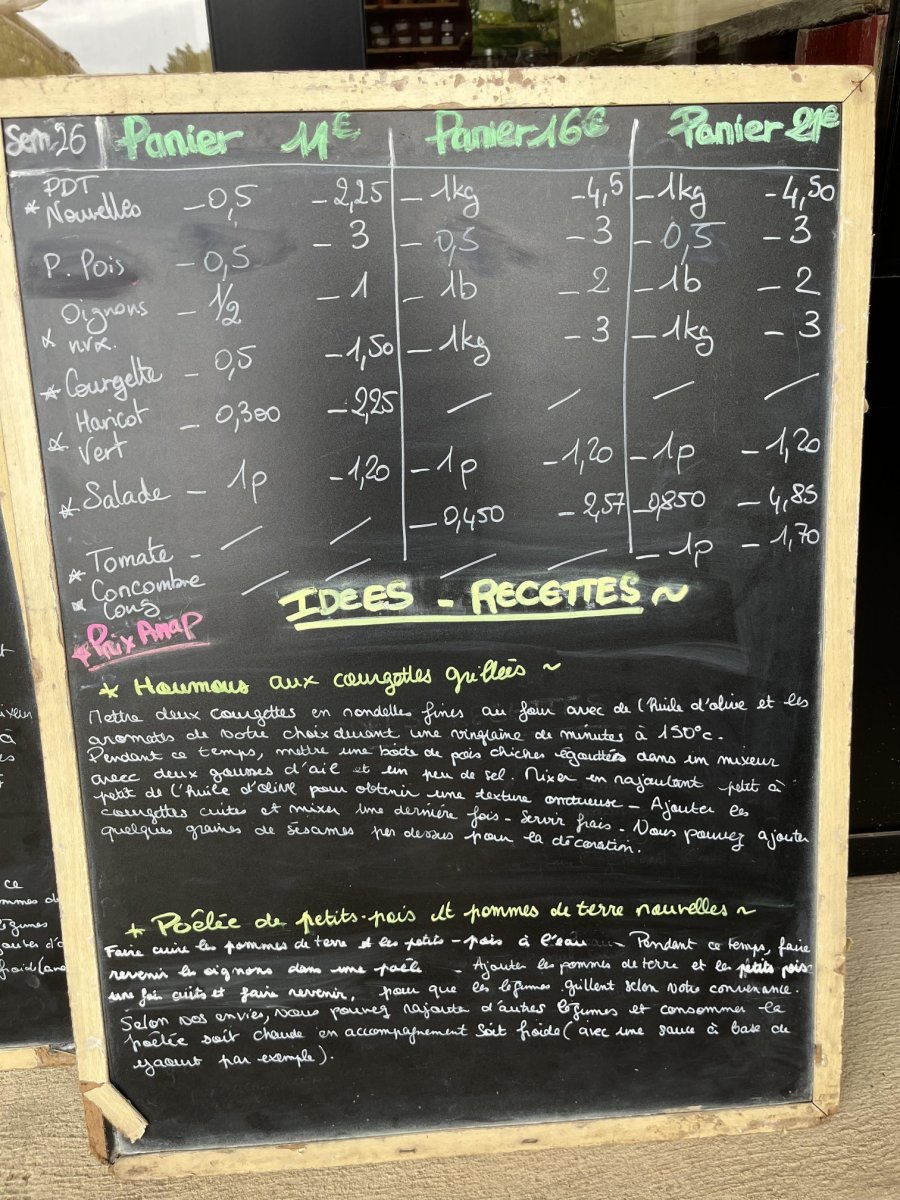 Sem 26 Panier 11€ Panier 16€ Panier 21€
PDT
* Nouvelles - 0,5 - 2,25 - 1kg - 4,5 - 1kg - 4,50
P. Pois - 0,5 - 3 - 0,5 - 3 - 0,5 - 3
Oignons
* nvx. - 1/2 - 1 - 1b - 2 - 1b - 2
* Courgette - 0,5 - 1,50 - 1kg - 3 - 1kg - 3
Haricot
* Vert - 0,300 - 2,25 / / / /
* Salade - 1p - 1,20 - 1p - 1,20 - 1p - 1,20
* Tomate - / / - 0,450 - 2,57 - 0,850 - 4,85
* Concombre
Long / / / / - 1p - 1,70
* Prix Anap
IDEES - RECETTES ~
* Houmous aux courgettes grillées ~
Mettre deux courgettes en rondelles fines au four avec de l'huile d'olive et les
aromates de votre choix durant une vingtaine de minutes à 150°c.
Pendant ce temps, mettre une boîte de pois chiches égouttés dans un mixeur
avec deux gousses d'ail et un peu de sel. Mixer en rajoutant petit à
petit de l'huile d'olive pour obtenir une texture onctueuse - Ajouter les
courgettes cuites et mixer une dernière fois - Servir frais - Vous pouvez ajouter
quelques graines de sésames par dessus pour la décoration.
* Poêlée de petits-pois et pommes de terre nouvelles ~
Faire cuire les pommes de terre et les petits-pois à l'eau - Pendant ce temps, faire
revenir les oignons dans une poêle - Ajouter les pommes de terre et les petits pois
une fois cuits et faire revenir, pour que les légumes grillent selon votre convenance.
Selon vos envies, vous pouvez rajouter d'autres légumes et consommer la
poêlée soit chaude en accompagnement soit froide (avec une sauce à base de
yaourt par exemple).
ce
froid (ave